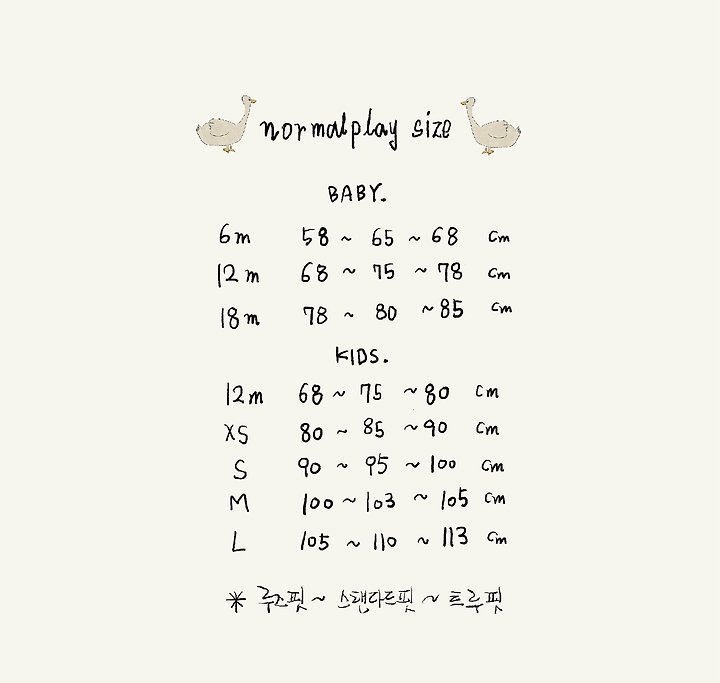 normalplay size
BABY.
6m 58 ~ 65 ~ 68 cm
12m 68 ~ 75 ~ 78 cm
18m 78 ~ 80 ~ 85 cm
KIDS.
12m 68 ~ 75 ~ 80 cm
XS 80 ~ 85 ~ 90 cm
S 90 ~ 95 ~ 100 cm
M 100 ~ 103 ~ 105 cm
L 105 ~ 110 ~ 113 cm
* 루즈핏 ~ 스탠다드핏 ~ 트루핏